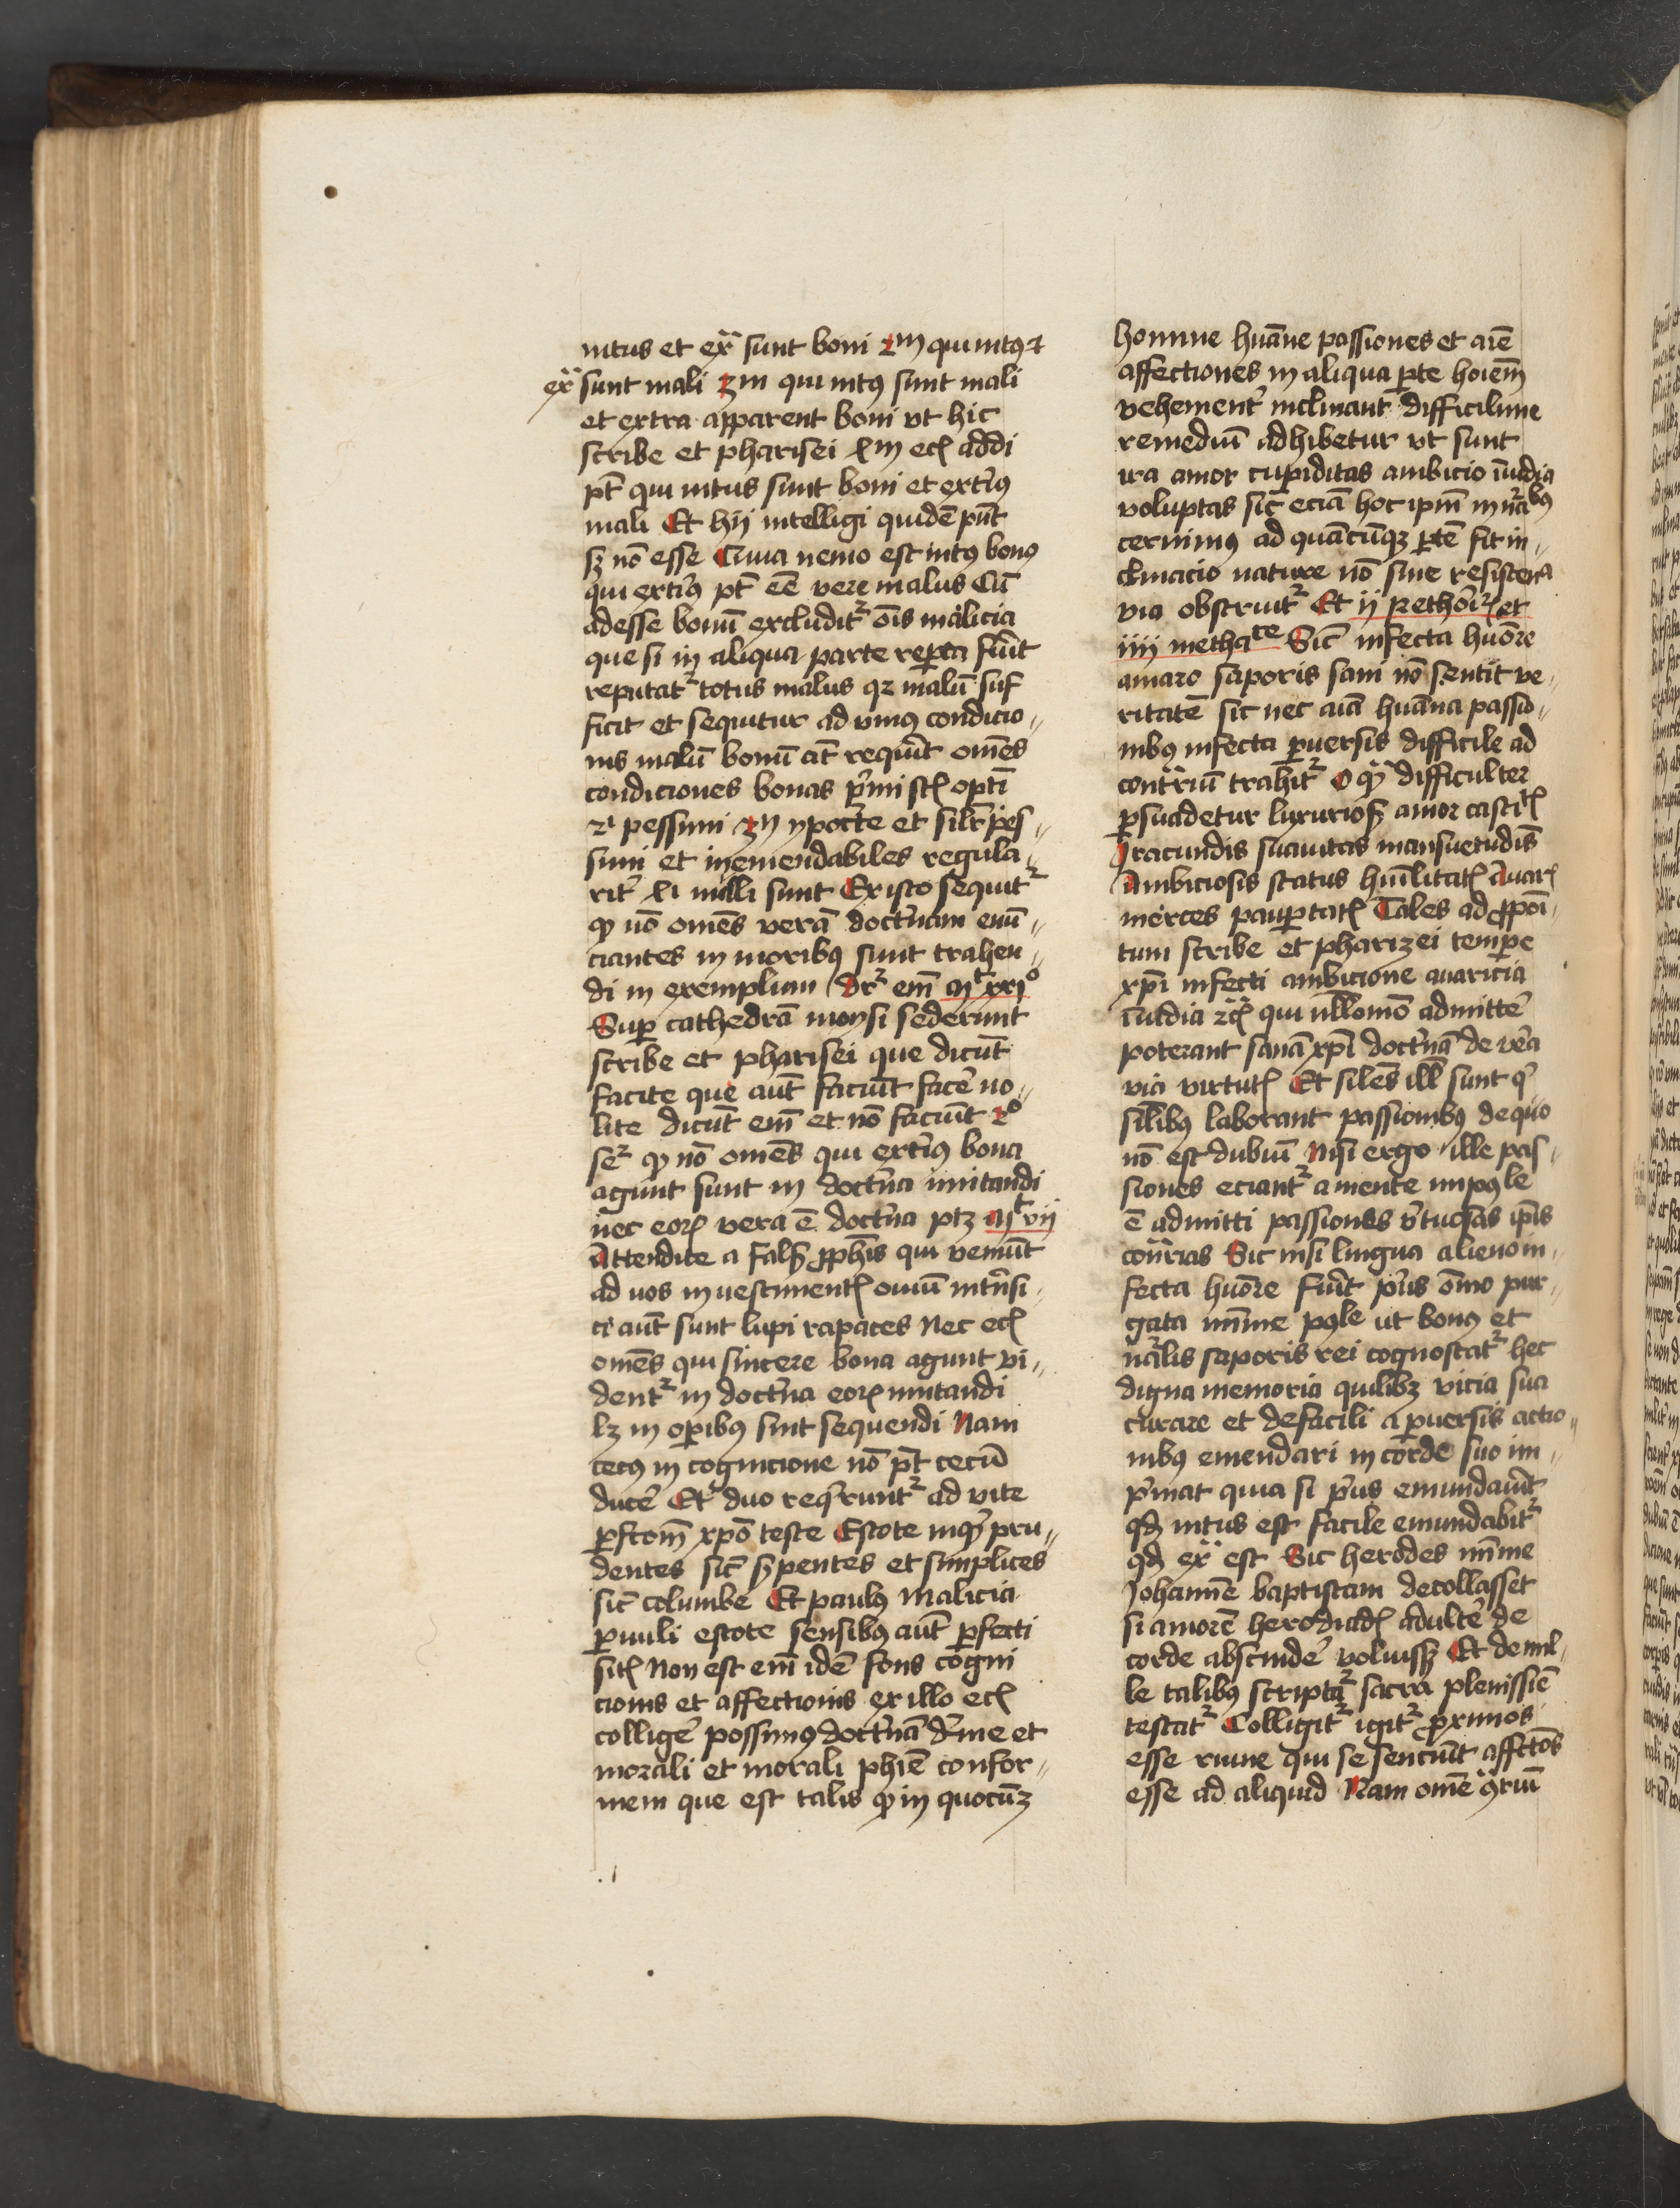 intus et exᵃ sunt boni 2m qui intꝰ et
exᵃ sunt mali 3m qui intꝰ sunt mali
et extra apparent boni vt hic
scribe et pharisei 4m eciā addi
pt̄ qui intus sunt boni et exteriꝰ
mali Et hij intelligi quidē pn̄t
sꝫ nō esse Quia nemo est intꝰ bonꝰ
qui exteriꝰ pt̄ eē vere malus Cū
adesse bonū excluditᷣ oīs malicia
que si in aliqua parte reꝑta fūit
reputatᷣ totus malus qꝛ malū suf
ficit et sequitur ad vniꝰ condicio〃
nis malū bonū āt requirit om̄es
condiciones bonas p̄mi sūt optī
2i pessimi 3ij ypocrite et silr̄ pes〃
simi et inemendabiles regula〃
rit̄ 4i nulli sunt Ex isto sequitᷣ
ꝙ nō om̄es verā doctrinam enū〃
ciantes in moribꝰ sunt trahen〃
di in exemplum Drᷣ em̄ mͭ xxiº
Suꝑ cathedrā moysi sederunt
scribe et pharisei que dicūt
facite que aūt faciūt facē no〃
lite dicūt em̄ et nō faciūt 2º
seᷣ ꝙ nō om̄es qui exteriꝰ bona
agunt sunt in doctrina imitandi
nec eoꝝ vera ē doctrina ptꝫ mͭ vij
Attendite a falsis ꝓphis qui veniūt
ad vos in vestimentꝭ ouiū intrinsi〃
ci aūt sunt lupi rapaces Nec eciā
om̄es qui sincere bona agunt vi〃
dentᷣ in doctrina eoꝝ imitandi
lꝫ in oꝑibꝰ sint sequendi Nam
cecꝰ in cognicione nō pt̄ cecū
ducē Etᷣ duo requiruntᷣ ad vite
ꝑfcōm xpō teste Estote inqͥ pru〃
dentes sic̄ sꝑpentes et simplices
sic̄ columbe Et paulꝰ Malicia
ꝑuuli estote sensibꝰ aūt ꝑfecti
sitꝭ Non est em̄ idē fons cogni
cionis et affectionis ex illo eciā
colligē possimꝰ doctrinā diuine et
morali et morali phīe confor〃
mem que est talis ꝙ in quocūꝫ
homine hūane passiones et aīe
affectiones in aliqua ꝑte hoīem
vehement̄ inclinant difficilime
remediū adhibetur vt sunt
ira amor cupiditas ambicio īuidia
voluptas sic̄ eciā hoc ipm̄ in naturalibus
cernimꝰ ad quācūqꝫ ꝑtē fit in〃
clinacio nature nō sine resistencia
via obstruitᷣ Et ij rethoricꝝ et
iiij methaᶜᵉ Sic̄ infecta hūore
amaro saporis sani nō sentit ve〃
ritatē sic nec aīa hūana passio〃
nibꝰ infecta ꝑuersis difficile ad
contrariū trahitᷣ O qͣ difficulter
ꝑsuadetur luxuriosis amor castitatꝭ
Iracundis suauitas mansuetudīs
Ambiciosis status hūilitatꝭ Auarꝭ
merces pauꝑtatꝭ Tales ad ꝓpoī〃
tum scribe et pharizei tempe
xpi infecti ambicione auaricia
īuidia ꝛcͣ qui nullomō admittē
poterant sanā xpi doctrinā de vera
via virtutꝭ Et siles ill sunt qͥ
silibꝰ laborant passionibꝰ de quo
nō est dubiū Nisi ergo ille pas〃
siones eciantᷣ a mente impossibile
ē admitti passiones virtuosas ipīs
contrarias Sic nisi lingua alieno in〃
fecta hūore fūit priꝰ oīno pur〃
gata minīe possibile ut bonꝰ et
naturalis saporis rei cognoscatᷣ hec
digna memoria quilibꝫ vicia sua
curare et defacili a ꝑuersis actio〃
nibꝰ emendari in corde suo im〃
p̄mat quia si priꝰ emundauīt
qd̄ intus est facile emundabitᷣ
qd̄ exᵃ est Sic herodes minīe
Johannē baptistam decollasset
si amorē herodiadꝭ adulterē de
corde abscindē voluissꝫ Et de mil〃
le talibꝰ scriptaᷣ sacra plenissīe
testatᷣ Colligitᷣ igitᷣ ꝓximos
esse ruine qui se senciūt affctōs
esse ad aliquid Nam omē ꝯtrariū